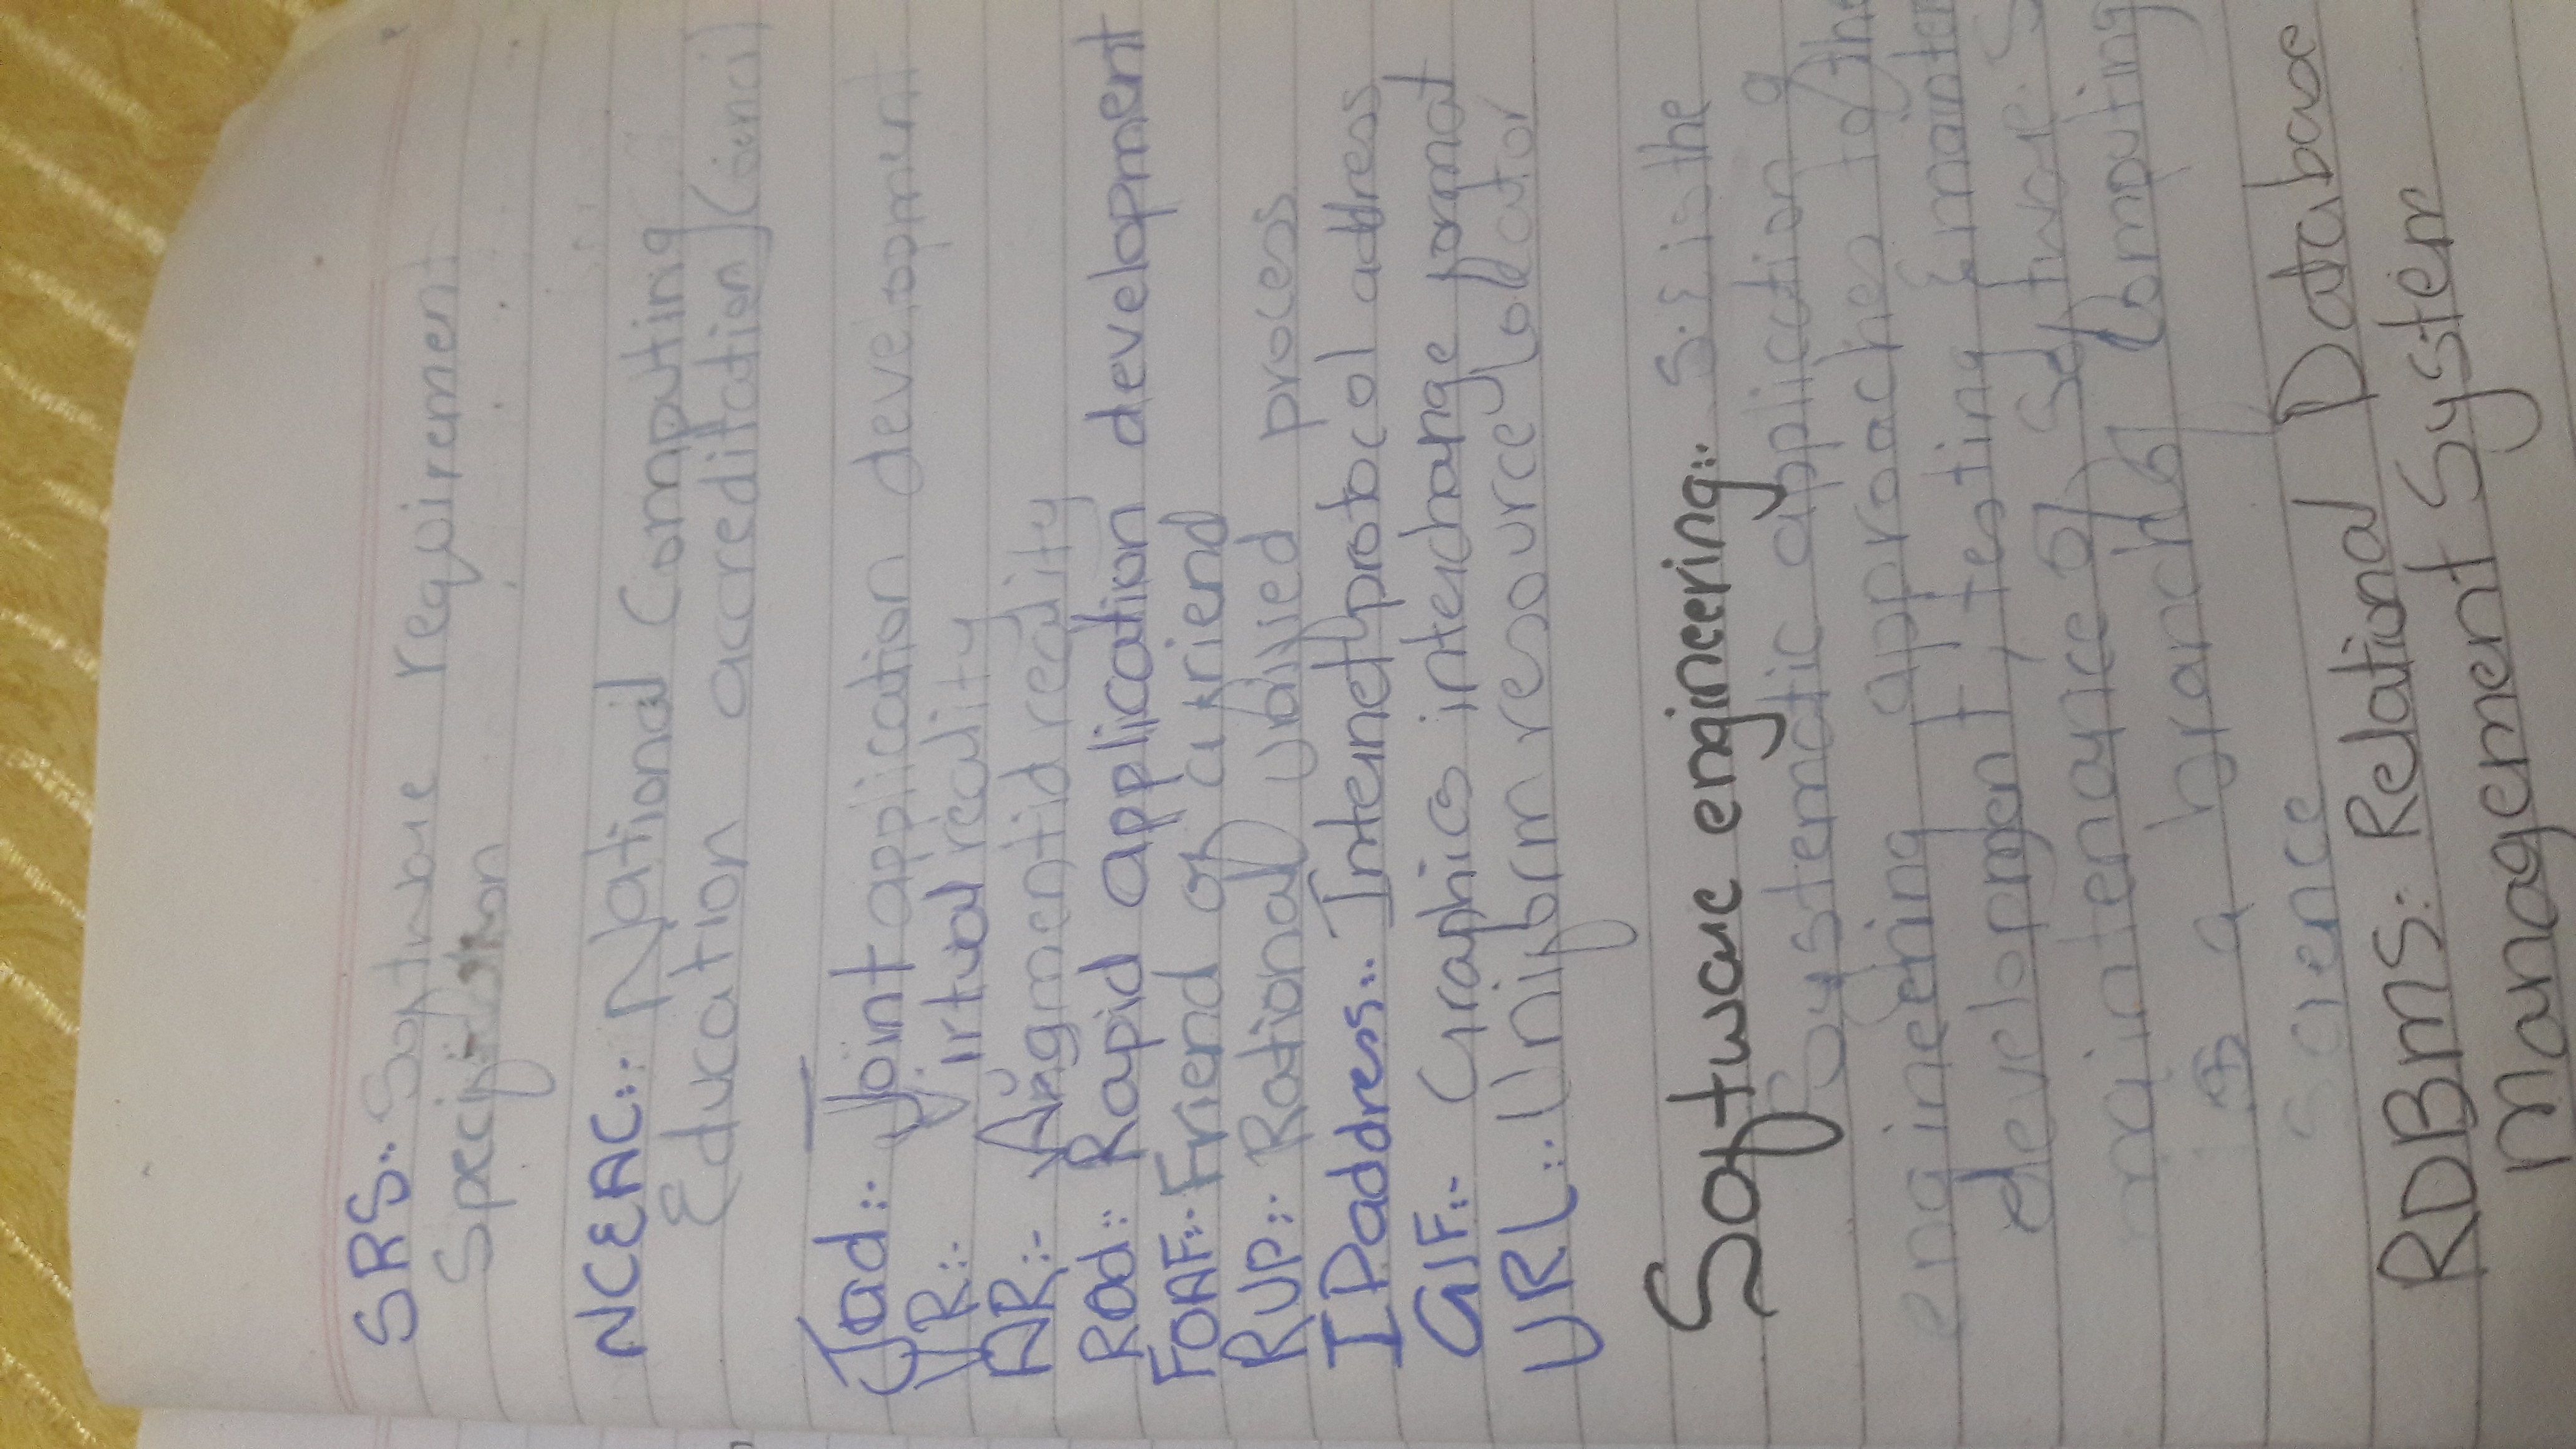 SRS:- Software requirement
Specification
NCEAC:- National Computing
Education accreditation Council
Jad:- Joint application development
VR:- Virtual reality
AR:- Augmentid reality
Rad:- Rapid application development
FOAF:- Friend of a friend
RUP:- Rational unified process
IP address:- Internet protocol address
GIF:- Graphics interchange format
URL:- Uniform resource locator
Software engineering:- S.E is the
Systematic application of
engineering approaches to the
development, testing & mainten
maintenance of Software. S
is a branch of Computing
Science
RDBMS:- Relational Database
Management System